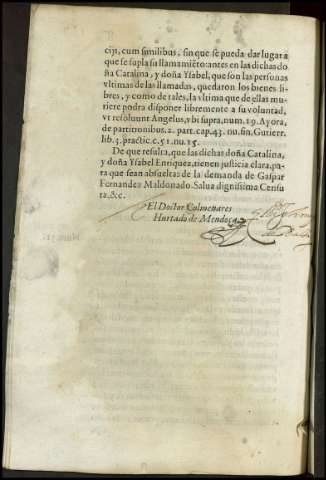 cijs, cum similibus, sin que se pueda dar lugar a
que se supla su llamamiẽto: antes en las dichas do
ña Catalina, y doña Ysabel, que son las personas
vltimas de las llamadas, quedaron los bienes li-
bres, y como de tales, la vltima que dellas mu-
riere podra disponer libremente a su voluntad,
vt resoluunt Angelus, vbi supra, num. 19. Ayora,
de partitionibus. 2. part. cap. 43. nu. fin. Gutierr.
lib. 3. practic. c. 51. nu. 15.
De que resulta, que las dichas doña Catalina,
y doña Ysabel Enriquez, tienen justicia clara, pa
ra que sean absueltas de la demanda de Gaspar
Fernandez Maldonado. Salua dignissima Censu
ra, &c.
El Doctor Colmenares
Hurtado de Mendoça.